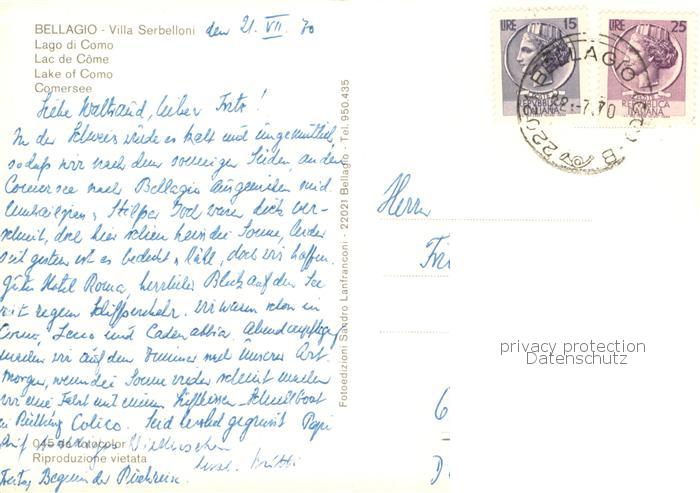 BELLAGIO - Villa Serbelloni den 21. VII. 70
Lago di Como
Lac de Côme
Lake of Como
Comersee
Liebe Waltraud, lieber Fritz!
In der Schweiz wurde es kalt und ungemütlich,
sodaß wir nach dem sonnigen Süden, an den
Comersee nach Bellagio ausgewichen sind.
Umbrailpass, Stilfser Joch waren dick ver-
schneit, doch hier schien heiss die Sonne, leider
seit gestern ist es bedeckt u. kühl, doch wir hoffen.
gutes Hotel Roma, herrlicher Blick auf den See
mit regem Schiffsverkehr. Wir waren schon in
Como, Lecco und Cadenabbia. Abendverpflegung
machen wir auf dem Zimmer nach unserer Art.
Morgen, wenn die Sonne wieder scheint machen
wir eine Fahrt mit einem Schnellboot
in Richtung Colico. Seid herzlich gegrüsst Papi
Auf
045 46 fotocolor
Riproduzione vietata
Freitag Beginn der
Fotoedizioni Sandro Lanfranconi - 22021 Bellagio - Tel. 950.435
LIRE 15
LIRE 25
POSTE
REPVBBLICA
ITALIANA
POSTE
REPVBBLICA
ITALIANA
BELLAGIO
22-7.70
Herrn
privacy protection
Datenschutz